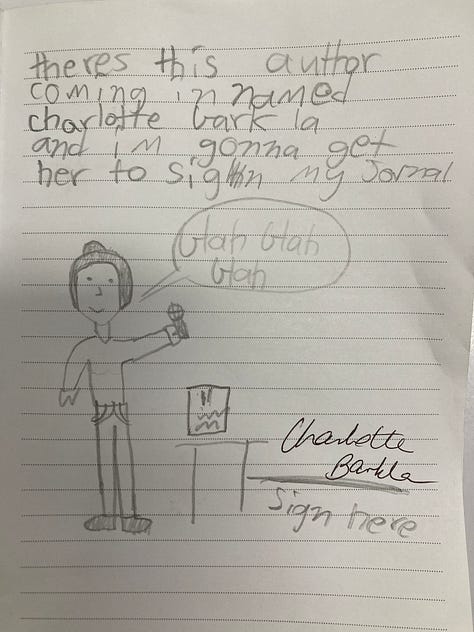 theres this author
coming in named
charlotte bark la
and im gonna get
her to sign my Jornal
blah blah
blah
Charlotte
Barkla
Sign here